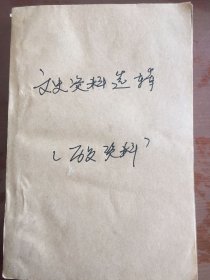 文史资料选辑
（历史资料）